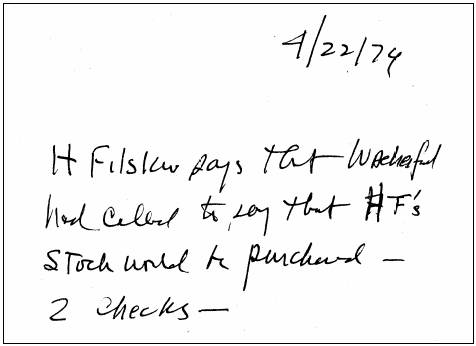 4/22/74
H Filskov says that Wacker
had called to say that HF's
stock would be purchased —
2 checks —